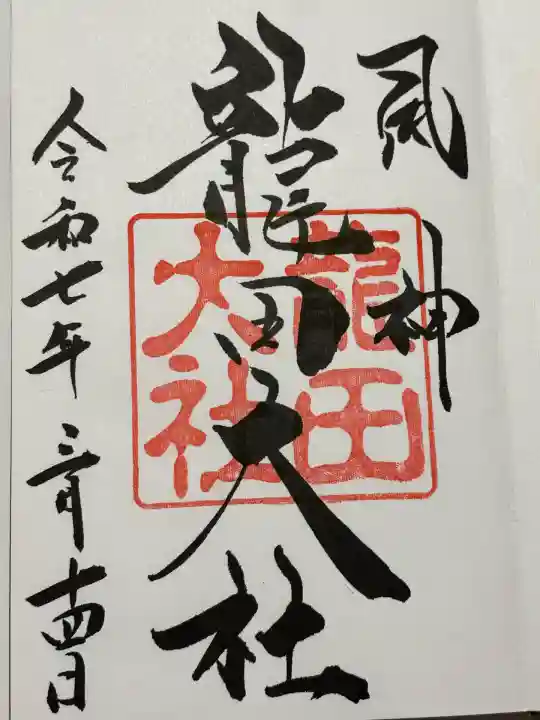 風神
龍田大社
龍田
大社
令和七年 三月十四日